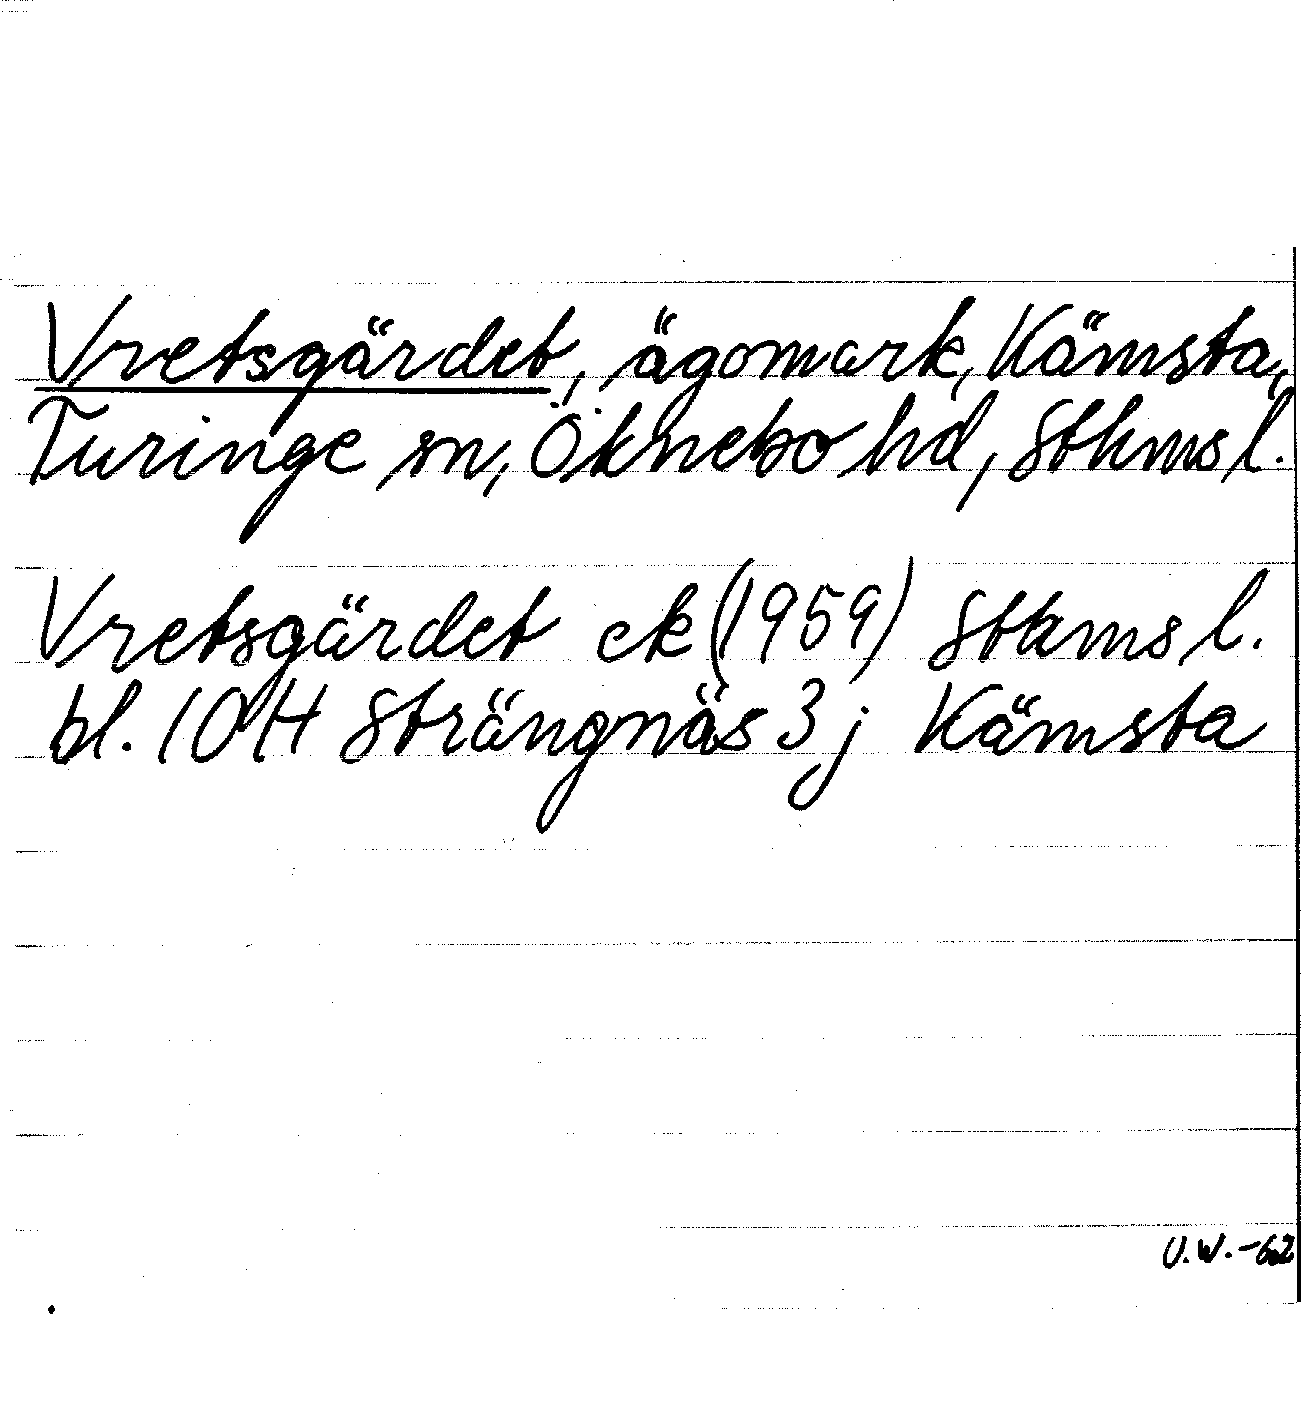 Vretsgärdet, ägomark, Kämsta,
Turinge sn, Öknebo hd, Sthms l.
Vretsgärdet ek (1959) Sthms l.
bl. 10H Strängnäs 3 j Kämsta
U.W.-62